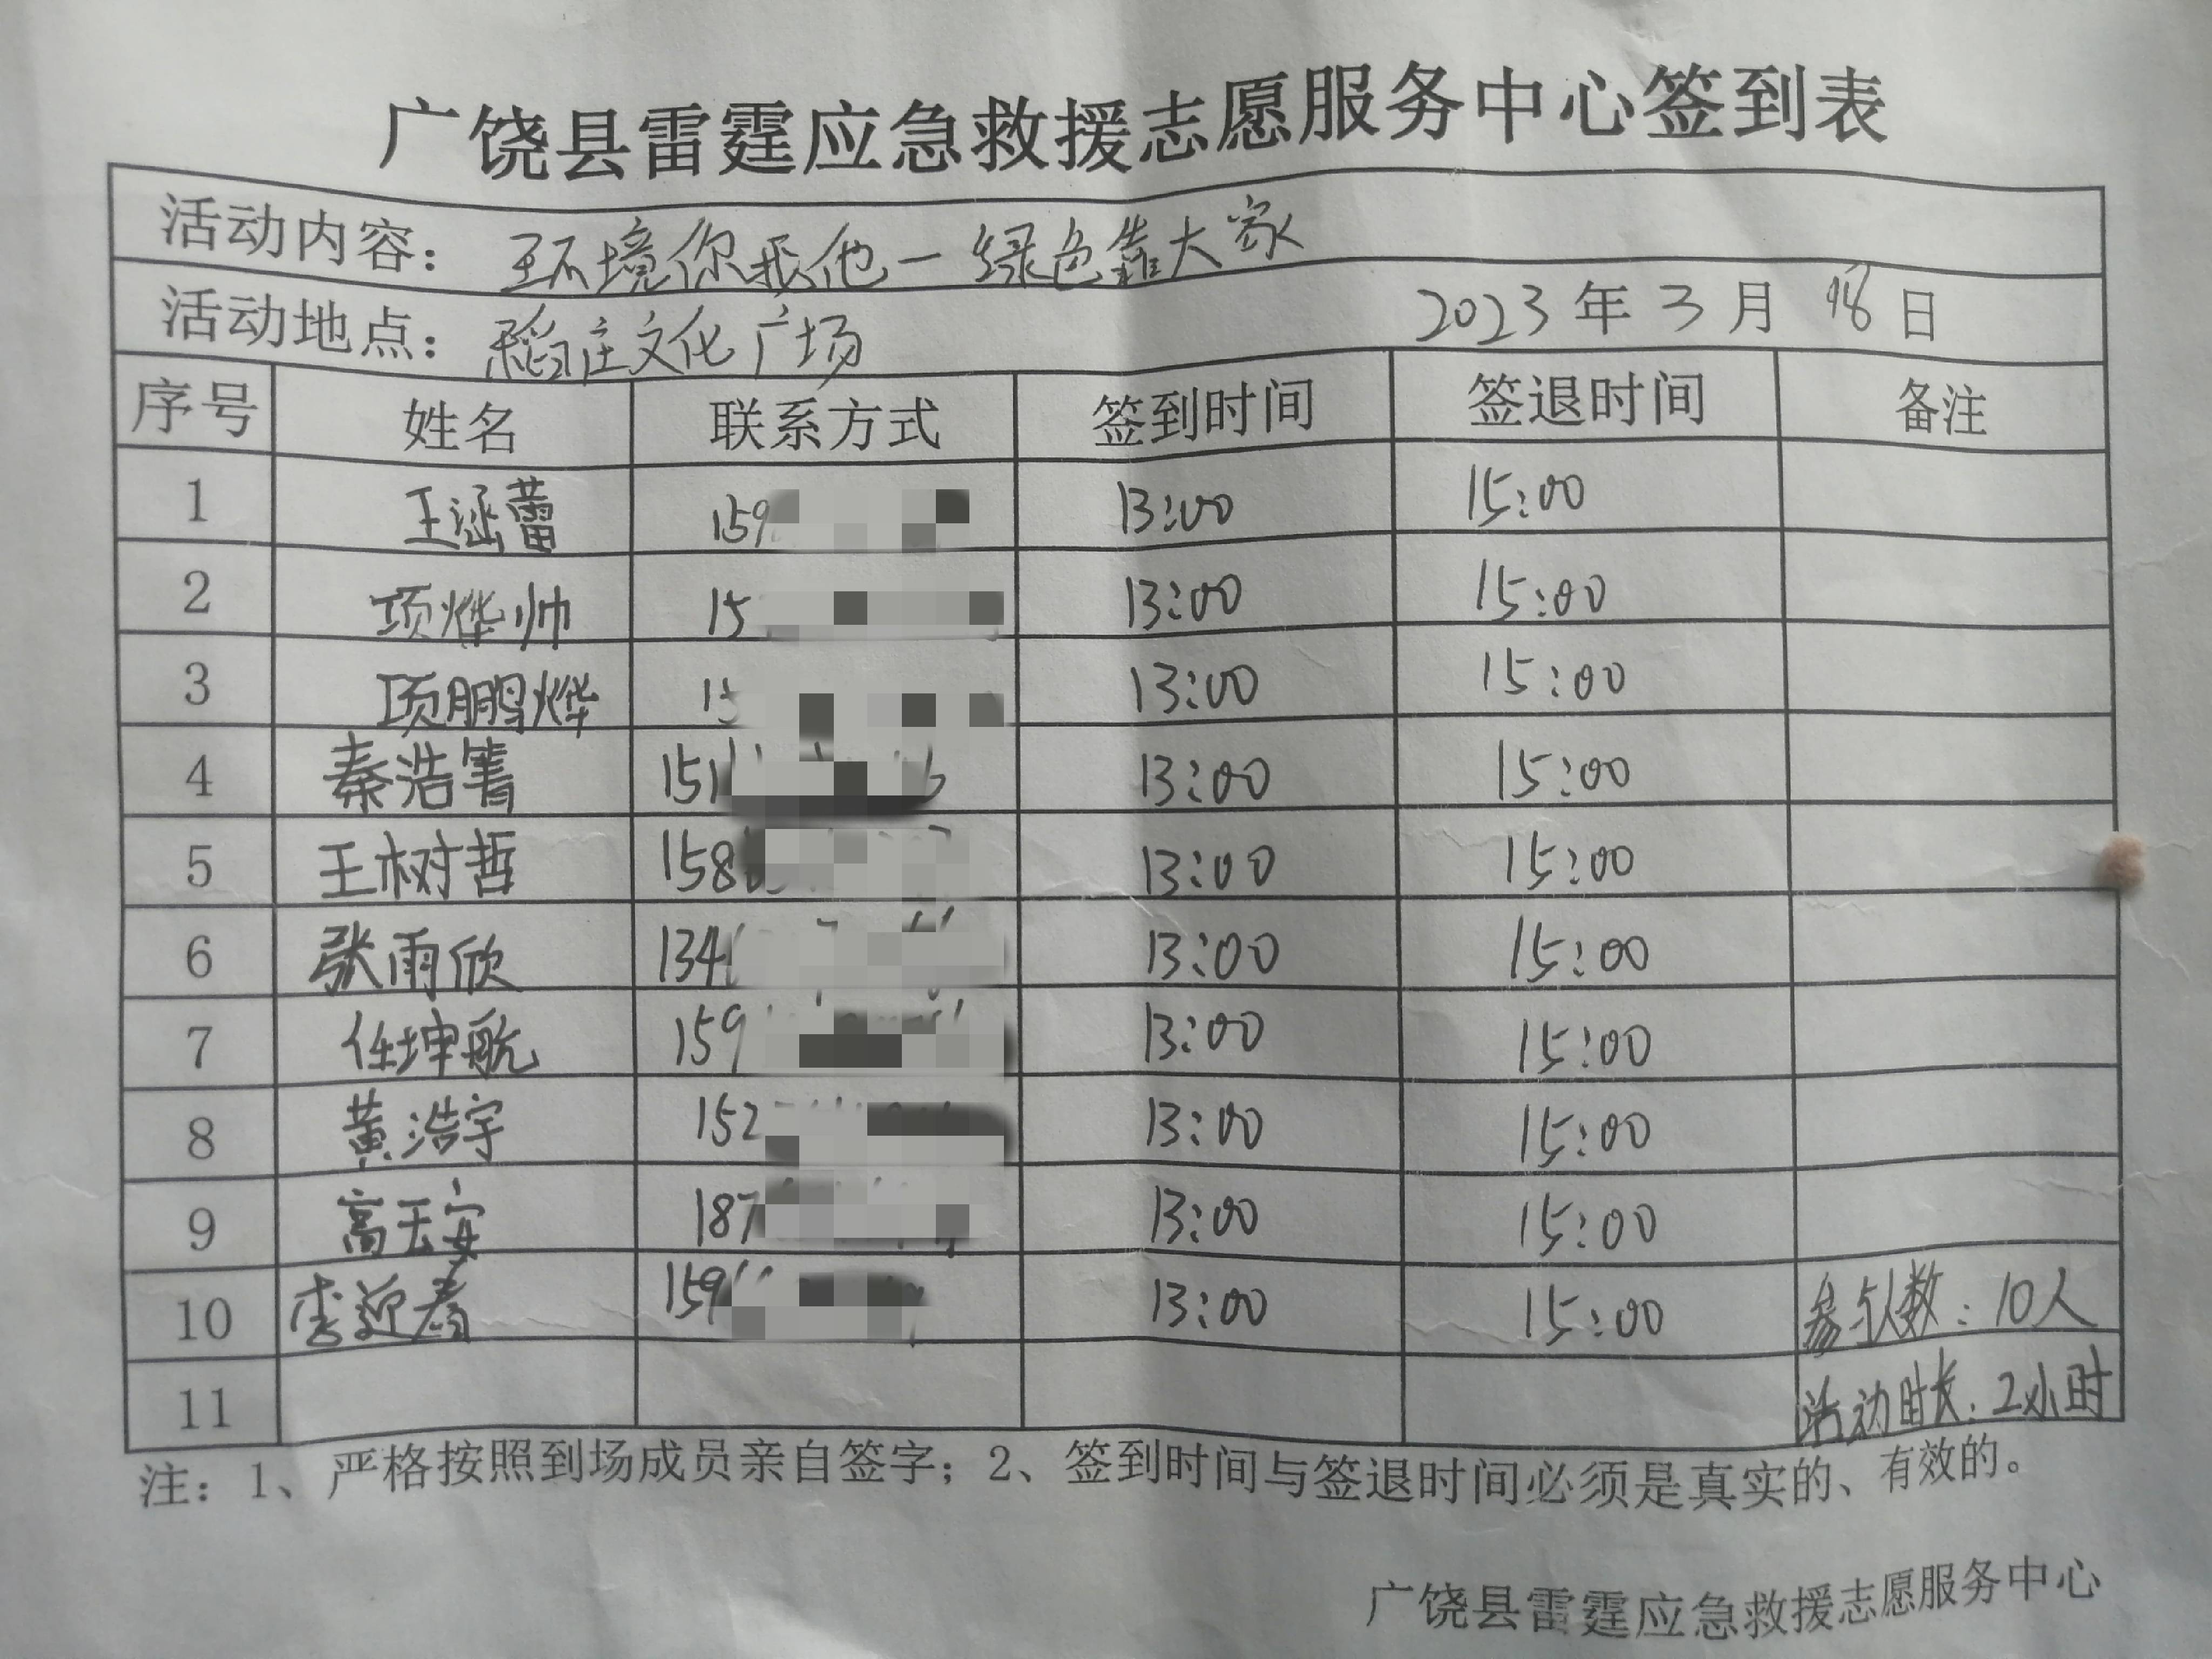 广饶县雷霆应急救援志愿服务中心签到表
活动内容：环境你我他一绿色靠大家
活动地点：稻庄文化广场 2023年3月18日
序号 姓名 联系方式 签到时间 签退时间 备注
1 王涵蕾 159 13:00 15:00
2 项烨帅 15 13:00 15:00
3 项鹏烨 15 13:00 15:00
4 秦浩箐 151 13:00 15:00
5 王树哲 158 13:00 15:00
6 张雨欣 134 13:00 15:00
7 任坤航 159 13:00 15:00
8 黄浩宇 152 13:00 15:00
9 高玉安 187 13:00 15:00
10 李迎春 159 13:00 15:00 参与人数：10人
11 活动时长：2小时
注：1、严格按照到场成员亲自签字；2、签到时间与签退时间必须是真实的、有效的。
广饶县雷霆应急救援志愿服务中心